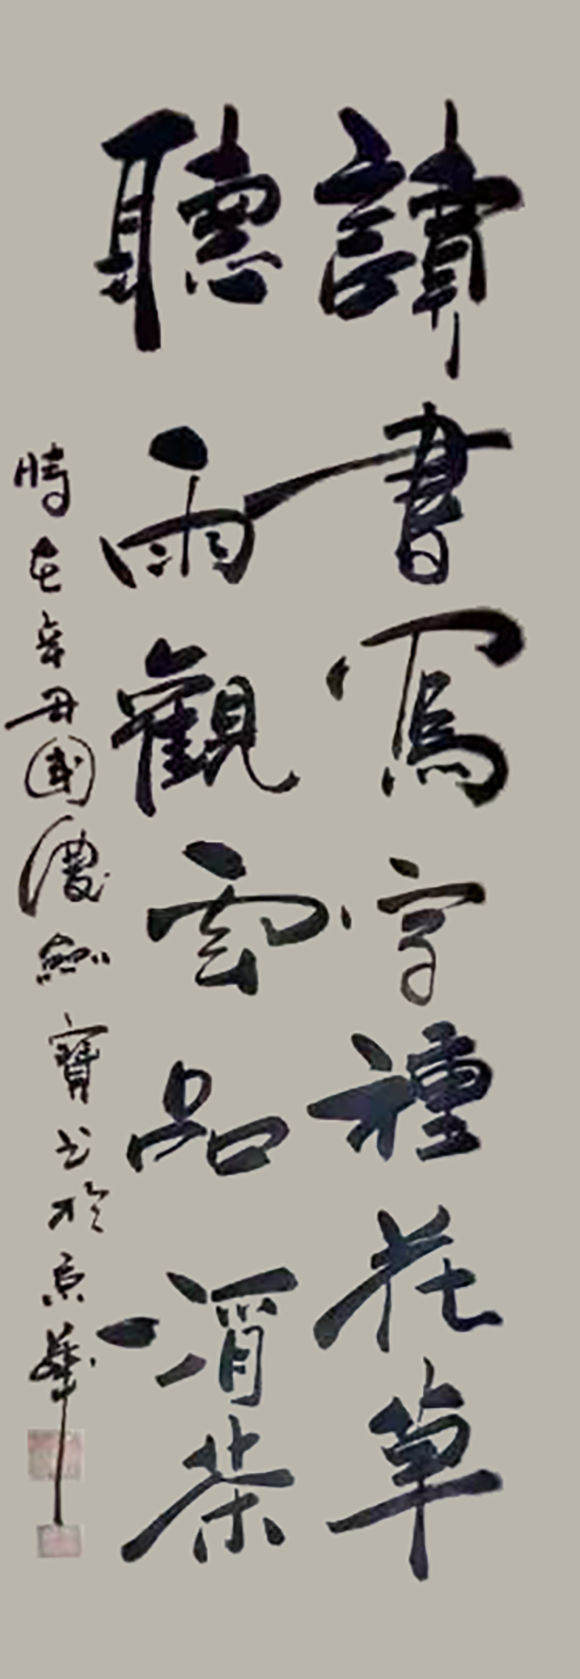 讀書寫字種花草
聽雨觀雲品酒茶
時在辛丑國慶 寶書於京華